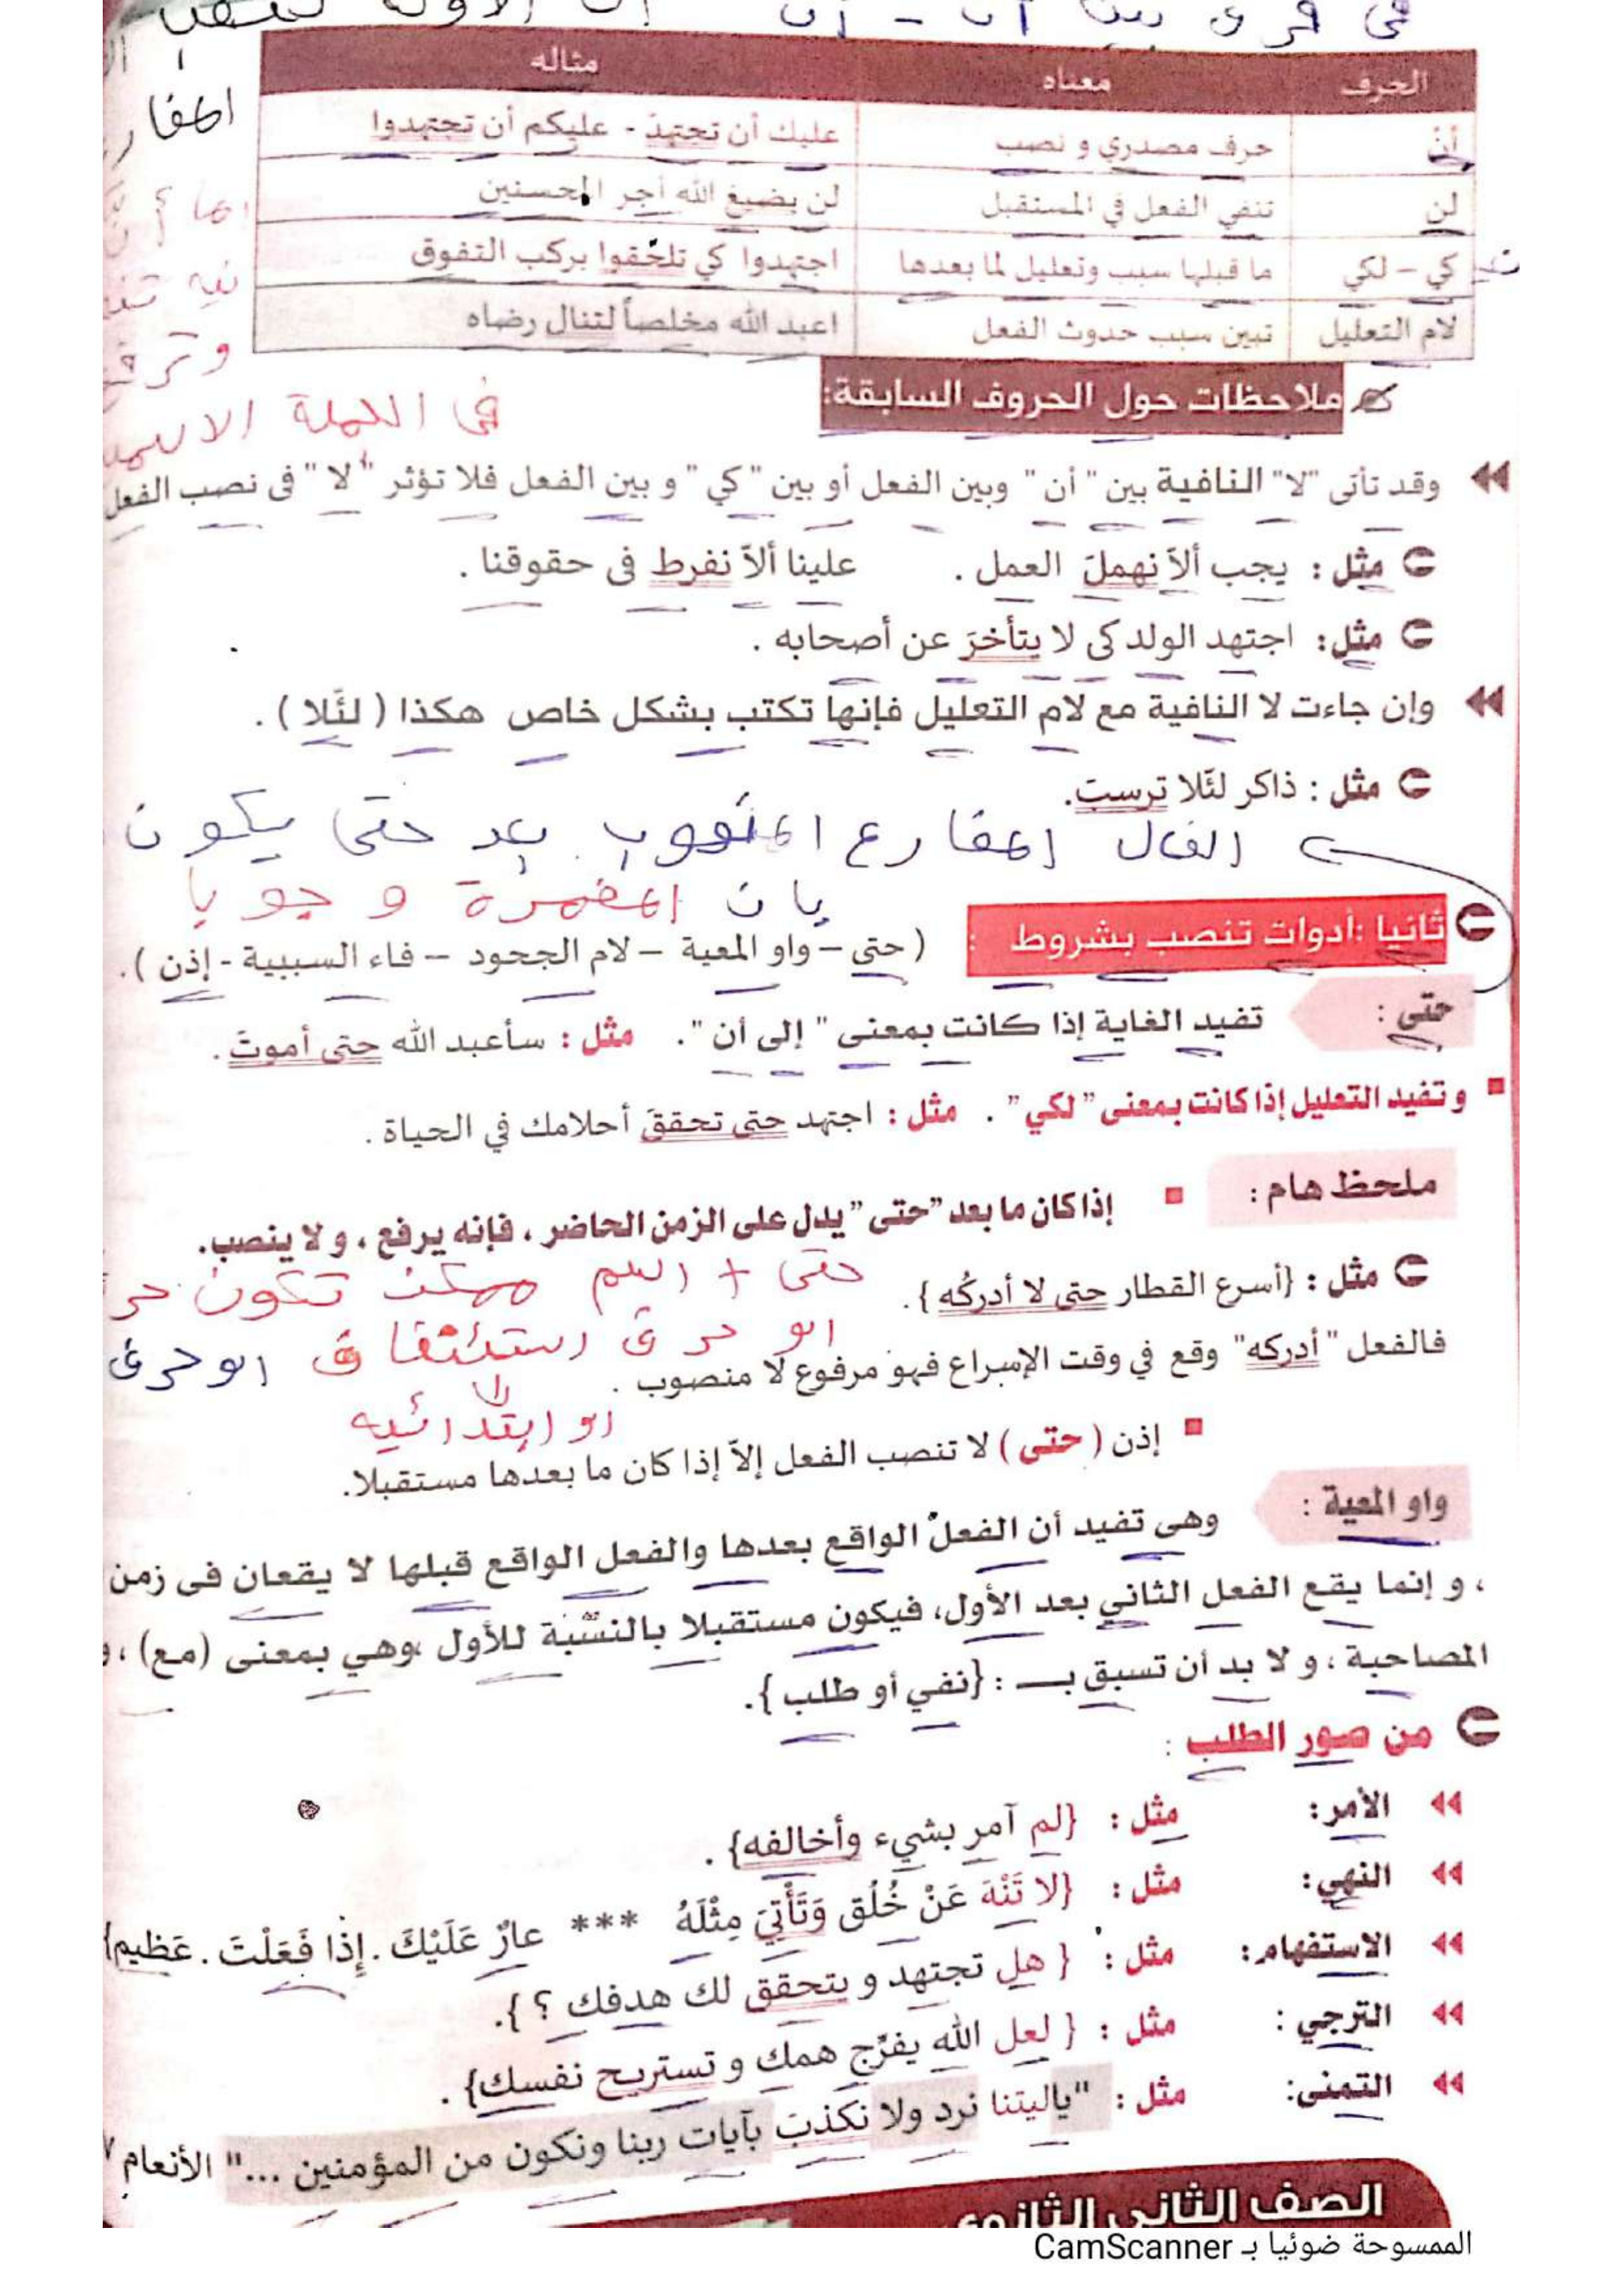 فى فرق بين أن - إن
الحرف معناه مثاله
أن حرف مصدري و نصب عليك أن تجتهدَ - عليكم أن تجتهدوا
لن تنفي الفعل في المستقبل لن يضيعَ الله أجر المحسنين
كي – لكي ما قبلها سبب وتعليل لما بعدها اجتهدوا كي تلحقوا بركب التفوق
لام التعليل تبين سبب حدوث الفعل اعبد الله مخلصاً لتنال رضاه
المضار
وترفع
فى الجملة
ملاحظات حول الحروف السابقة:
وقد تأتى "لا" النافية بين " أن " وبين الفعل أو بين " كي " و بين الفعل فلا تؤثر " لا " فى نصب الفعل
مثل : يجب ألاّ نهملَ العمل . علينا ألاّ نفرط فى حقوقنا .
مثل: اجتهد الولد كى لا يتأخرَ عن أصحابه .
وإن جاءت لا النافية مع لام التعليل فإنها تكتب بشكل خاص هكذا ( لئلا ) .
مثل : ذاكر لئلا ترسبَ.
المضارع المنصوب بعد حتى يكون
بان المضمرة وجوبا
ثانيا :أدوات تنصب بشروط : ( حتى – واو المعية – لام الجحود – فاء السببية - إذن ) .
حتى : تفيد الغاية إذا كانت بمعنى " إلى أن ". مثل : سأعبد الله حتى أموتَ .
و تفيد التعليل إذا كانت بمعنى " لكي " . مثل : اجتهد حتى تحققَ أحلامك في الحياة .
ملحظ هام : إذا كان ما بعد "حتى " يدل على الزمن الحاضر ، فإنه يرفع ، و لا ينصب.
مثل : {أسرع القطار حتى لا أدركُه } .
حتى + اسم ممكن تكون حر
او حرف او حرف
فالفعل " أدركه" وقع في وقت الإسراع فهو مرفوع لا منصوب .
او ابتدائيه
إذن ( حتى ) لا تنصب الفعل إلاّ إذا كان ما بعدها مستقبلا.
واو المعية : وهى تفيد أن الفعل الواقع بعدها والفعل الواقع قبلها لا يقعان فى زمن
، و إنما يقع الفعل الثاني بعد الأول، فيكون مستقبلا بالنسبة للأول ،وهي بمعنى (مع) ، و
المصاحبة ، و لا بد أن تسبق بـــ : {نفي أو طلب }.
من صور الطلب :
الأمر: مثل : {لم آمر بشيء وأخالفه} .
النهي: مثل : {لا تَنْهَ عَنْ خُلُق وَتَأْتِيَ مِثْلَهُ *** عارٌ عَلَيْكَ . إِذا فَعَلْتَ . عَظيم}
الاستفهام: مثل : { هل تجتهد و يتحقق لك هدفك ؟ }.
الترجي : مثل : { لعل الله يفرّج همك و تستريح نفسك} .
التمنى: مثل : "ياليتنا نرد ولا نكذبَ بآيات ربنا ونكون من المؤمنين ..." الأنعام ٧
الصف الثانى الثانوى
الممسوحة ضوئيا بـ CamScanner